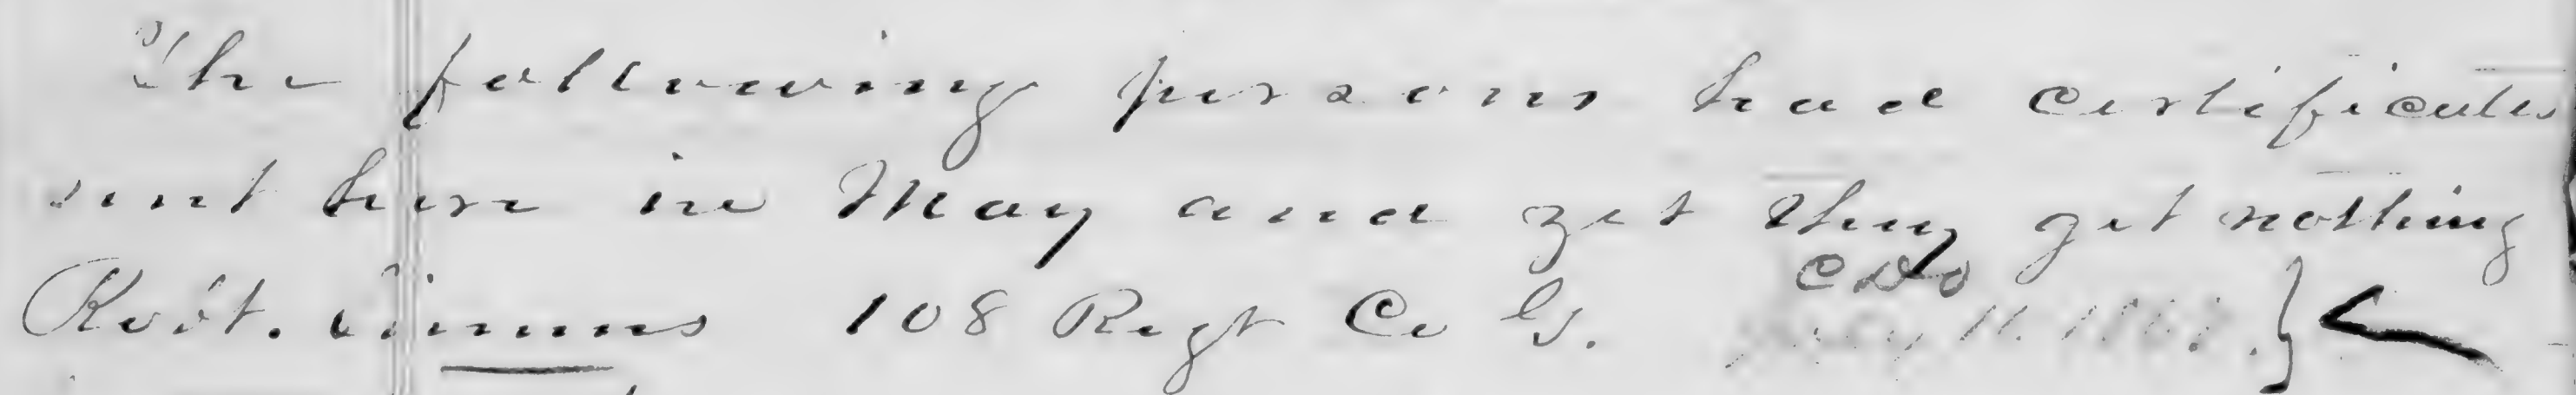 The following persons had certificates
sent here in May and yet they get nothing
Robt. 108 Regt Co G.